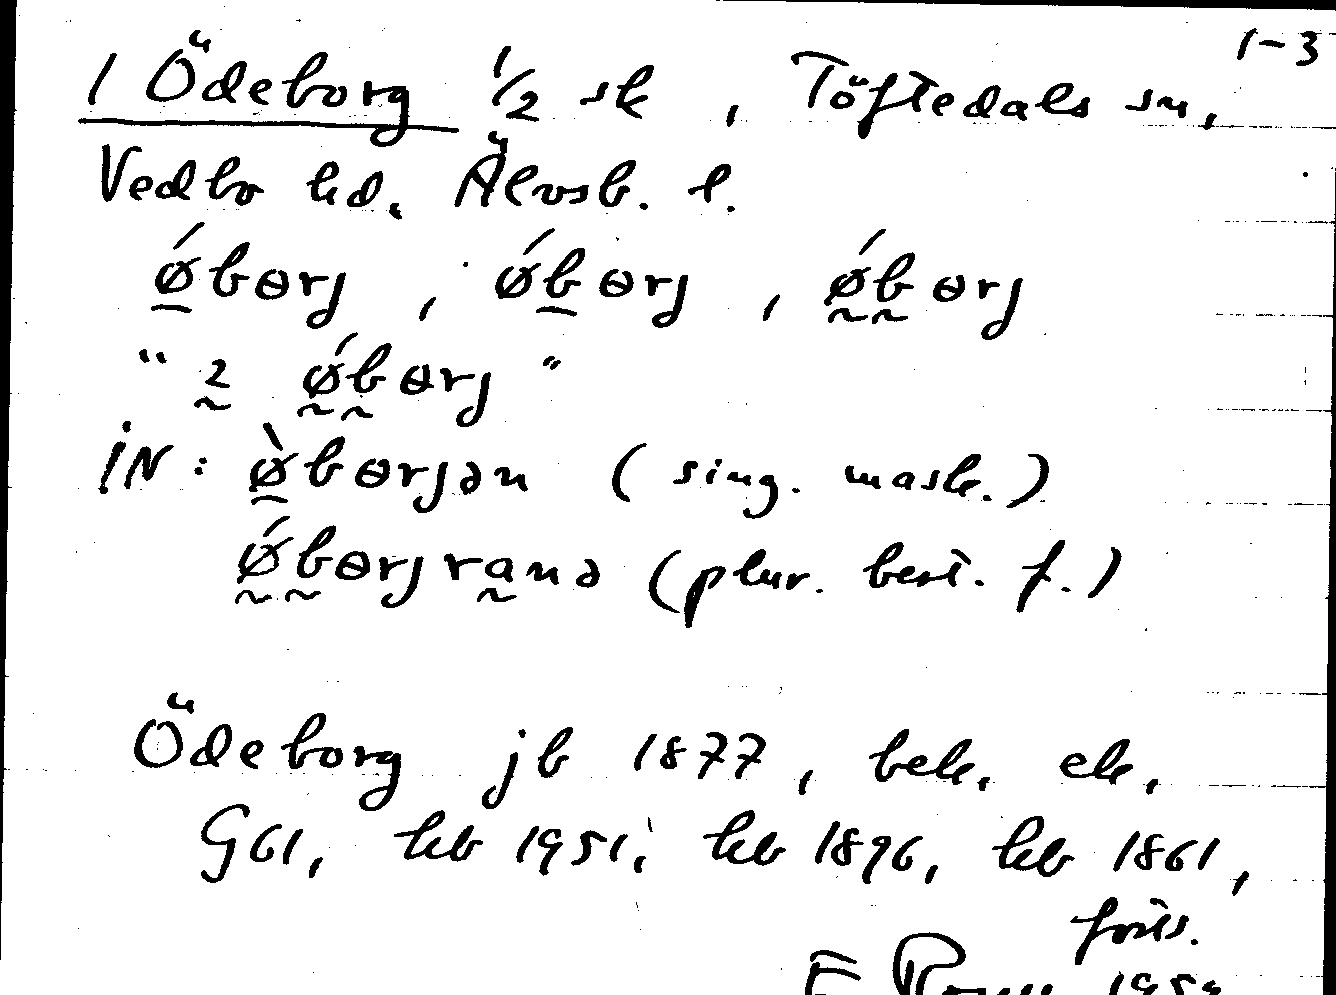 1-3
1 Ödeborg 1/2 sk, Töftedals sn,
Vedbo hd. Älvsb. l.
ǿbɵrj, ǿbɵrj, ǿbɵrj
"2 ǿbɵrj"
iN: ø̀bɵrjən (sing. mask.)
ǿbɵrjranə (plur. best. f.)
Ödeborg jb 1877, bek. ek,
G61, hb 1951, hb 1896, hb 1861,
forts.